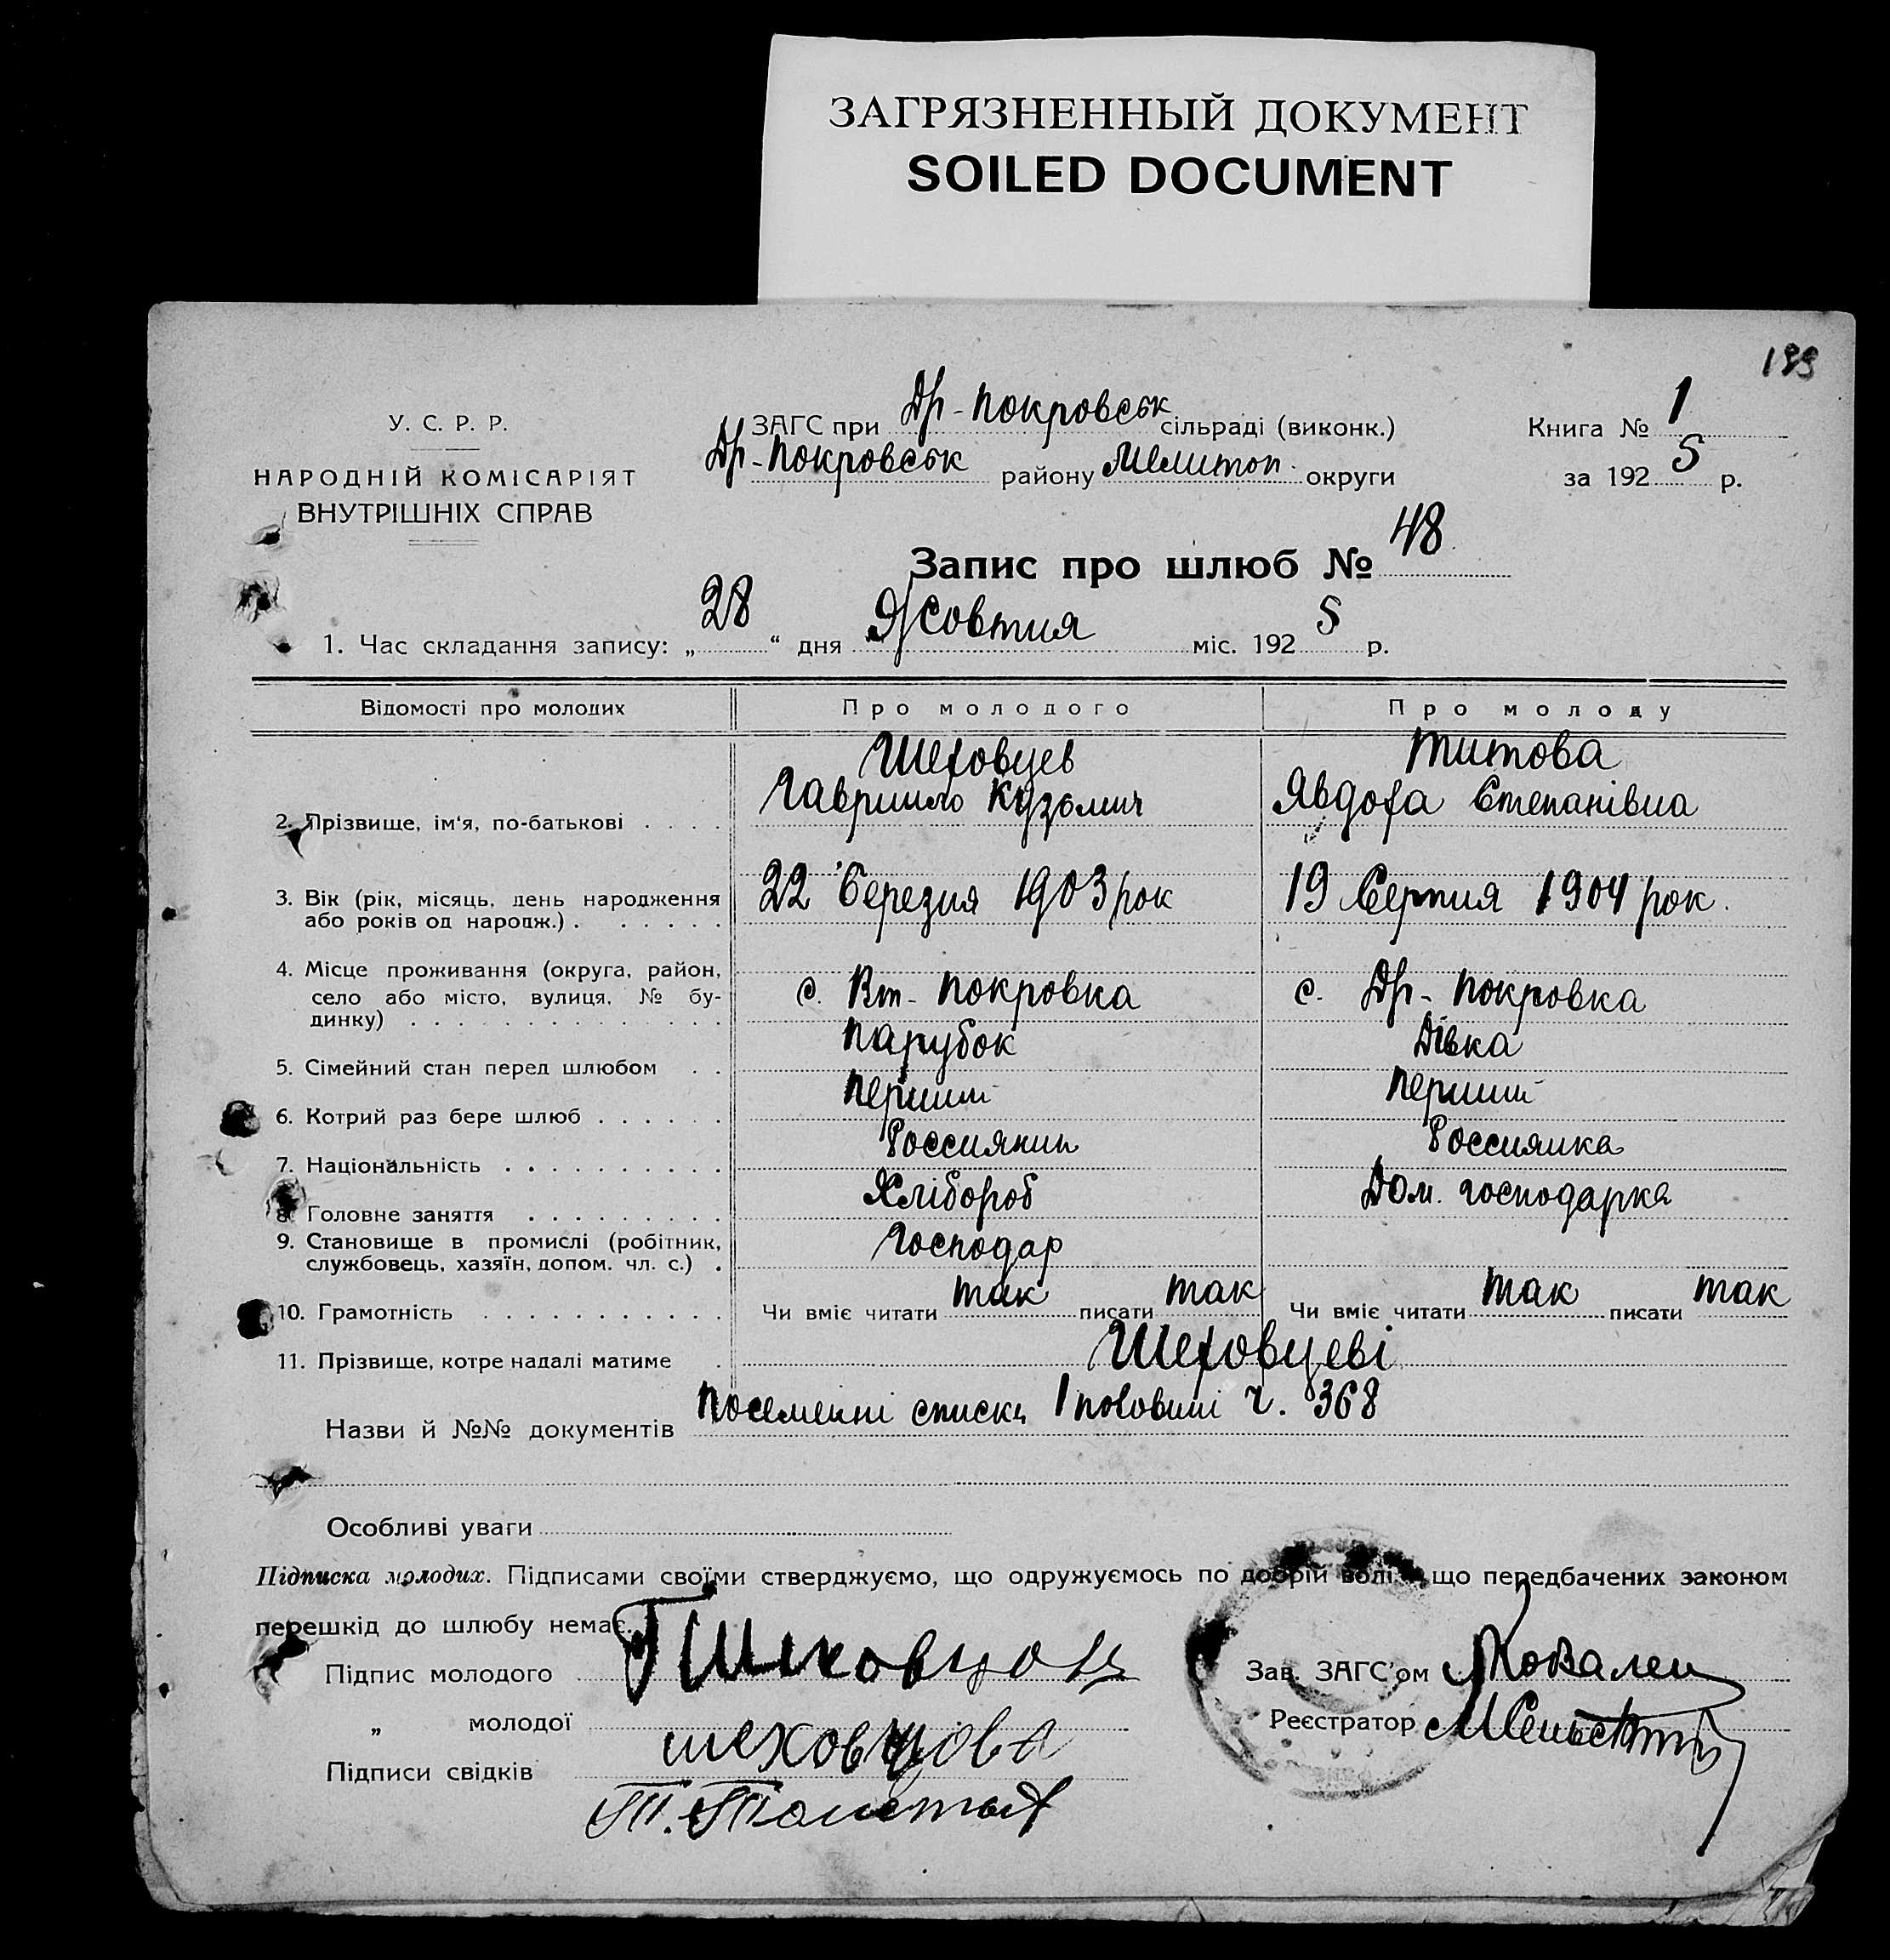 ЗАГРЯЗНЕННЫЙ ДОКУМЕНТ
SOILED DOCUMENT
199
У. С. Р. Р.
НАРОДНІЙ КОМІСАРІЯТ
ВНУТРІШНІХ СПРАВ
ЗАГС при Др-Покровськ сільраді (виконк.)
Др-Покровськ району Мелитоп. округи
Книга № 1
за 1925 р.
Запис про шлюб № 48
1. Час складання запису: „28“ дня Жовтня міс. 1925 р.
Відомості про молодих Про молодого Про молоду
Шеховцев Титова
2. Прізвище, ім‘я, по-батькові . . . . Гаврипло Кузьмич Явдоха Степанівна
3. Вік (рік, місяць, день народження 22 Березня 1903 рок 19 Серпня 1904 рок.
або років од народж.) . . . . . .
4. Місце проживання (округа, район,
село або місто, вулиця, № бу- с. Вт-Покровка с. Др-Покровка
динку) . . . . . . . . . . . . . .
5. Сімейний стан перед шлюбом . . Парубок Дівка
6. Котрий раз бере шлюб . . . . . . Перший Перший
7. Національність . . . . . . . . . . Россиянин Россиянка
8. Головне заняття . . . . . . . . . Хлібороб Дом. господарка
9. Становище в промислі (робітник, Господар
службовець, хазяїн, допом. чл. с.) .
10. Грамотність . . . . . . . . . . . Чи вміє читати так писати так Чи вміє читати так писати так
11. Прізвище, котре надалі матиме . Шеховцеві
Назви й №№ документів Посемейні списки 1 половині ч. 368
Особливі уваги
Підписка молодих. Підписами своїми стверджуємо, що одружуємось по добрій волі й що передбачених законом
перешкід до шлюбу немає.
Підпис молодого Г Шеховцов Зав. ЗАГС’ом
„ молодої шеховцова Реєстратор
Підписи свідків